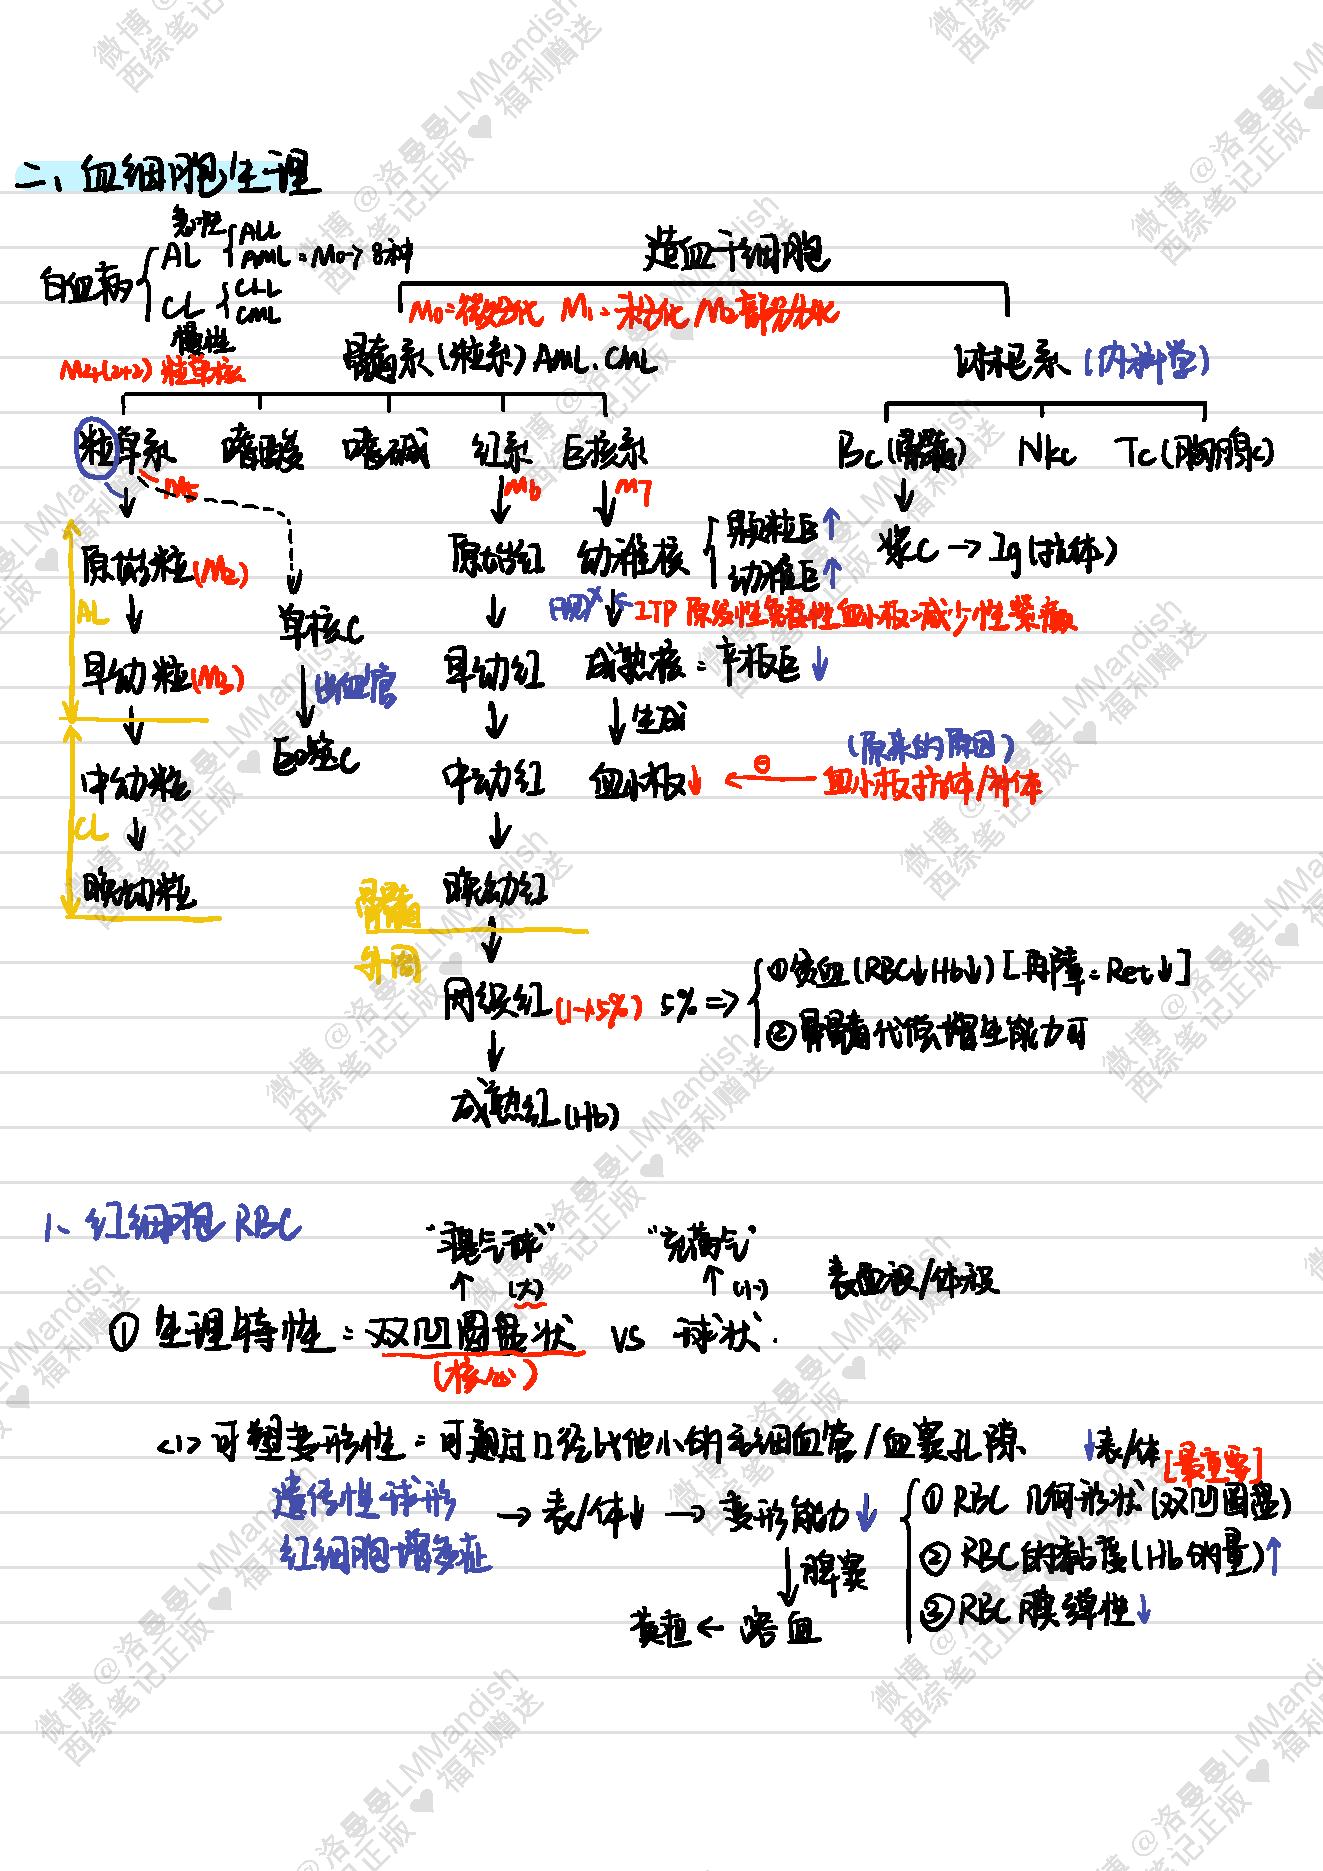 二、血细胞生理
白血病
急性 AL
ALL
AML = M0→7 8种
慢性 CL
CLL
CML
造血干细胞
M0=微分化 M1=未分化 M2部分分化
M4(2+2) 粒单核
髓系(粒系) AML.CML
淋巴系 (内科学)
粒单系 嗜酸 嗜碱 红系 巨核系
Bc(骨髓) Nkc Tc(胸腺c)
M5 M6 M7
原始粒(M2) 原始红 幼稚核
颗粒巨↑
幼稚巨↑
浆C → Ig(抗体)
AL
单核C
ITP 原发性免疫性血小板减少性紫癜
早幼粒(M3) 出血管 早幼红 成熟核 = 产板巨↓
生成
巨噬C
(原来的原因)
中幼粒 中幼红 血小板↓ ← ⊖ 血小板抗体/补体
CL
晚幼粒 骨髓 晚幼红
外周
网织红(1-1.5%) 5% ⇒
①贫血(RBC↓Hb↓) [再障 = Ret↓]
②骨髓代偿增生能力可
成熟红(Hb)
1、红细胞 RBC
"瘪气球" "充满气"
↑(大) ↑(小) 表面积/体积
① 生理特性 = 双凹圆盘状 vs 球状.
(核心)
<1> 可塑变形性 = 可通过口径比他小的毛细血管/血窦孔隙
↓表/体
[最重要]
遗传性球形
红细胞增多症
→ 表/体↓ → 变形能力↓
① RBC 几何形状(双凹圆盘)
② RBC的黏度(Hb的量)↑
③ RBC膜弹性↓
↓脾窦
黄疸 ← 溶血
微博 @洛曼曼LMMandish
西综笔记正版 ♥ 福利赠送